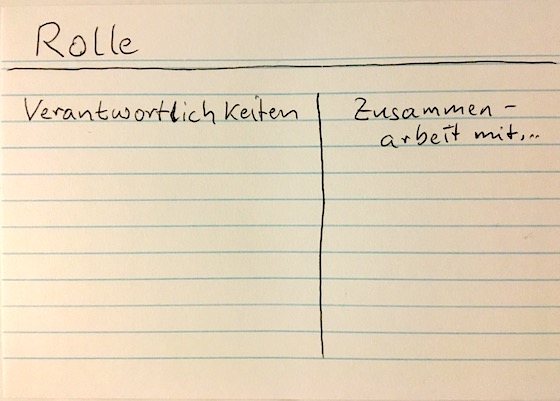 Rolle
Verantwortlichkeiten
Zusammen-
arbeit mit...